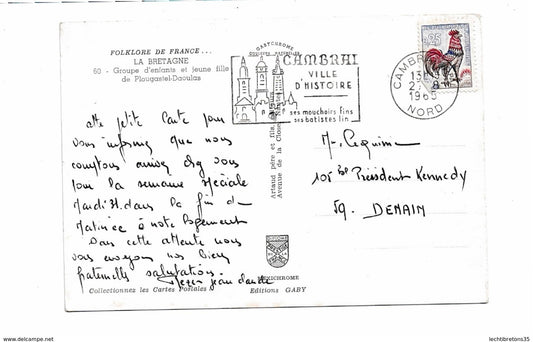 FOLKLORE DE FRANCE...
LA BRETAGNE
60 - Groupe d'enfants et jeune fille
de Plougastel-Daoulas
CAMBRAI
VILLE
D'HISTOIRE
ses mouchoirs fins
ses batistes lin
CAMBRAI
13
2
1965
NORD
0,25
Cette petite Carte pour
vous informer que nous
comptons arriver chez vous
pour la semaine spéciale
Mardi 31. dans la fin de
Matinée à notre logement
Dans cette attente nous
vous envoyons nos bien
fraternelles salutations.
Jean Claude
Mr
105 Bd Président Kennedy
59. DENAIN
MEXICHROME
Collectionnez les Cartes Postales
Editions GABY
Artaud père et fils
Avenue de la Close
www.delcampe.net
lechtbretons35